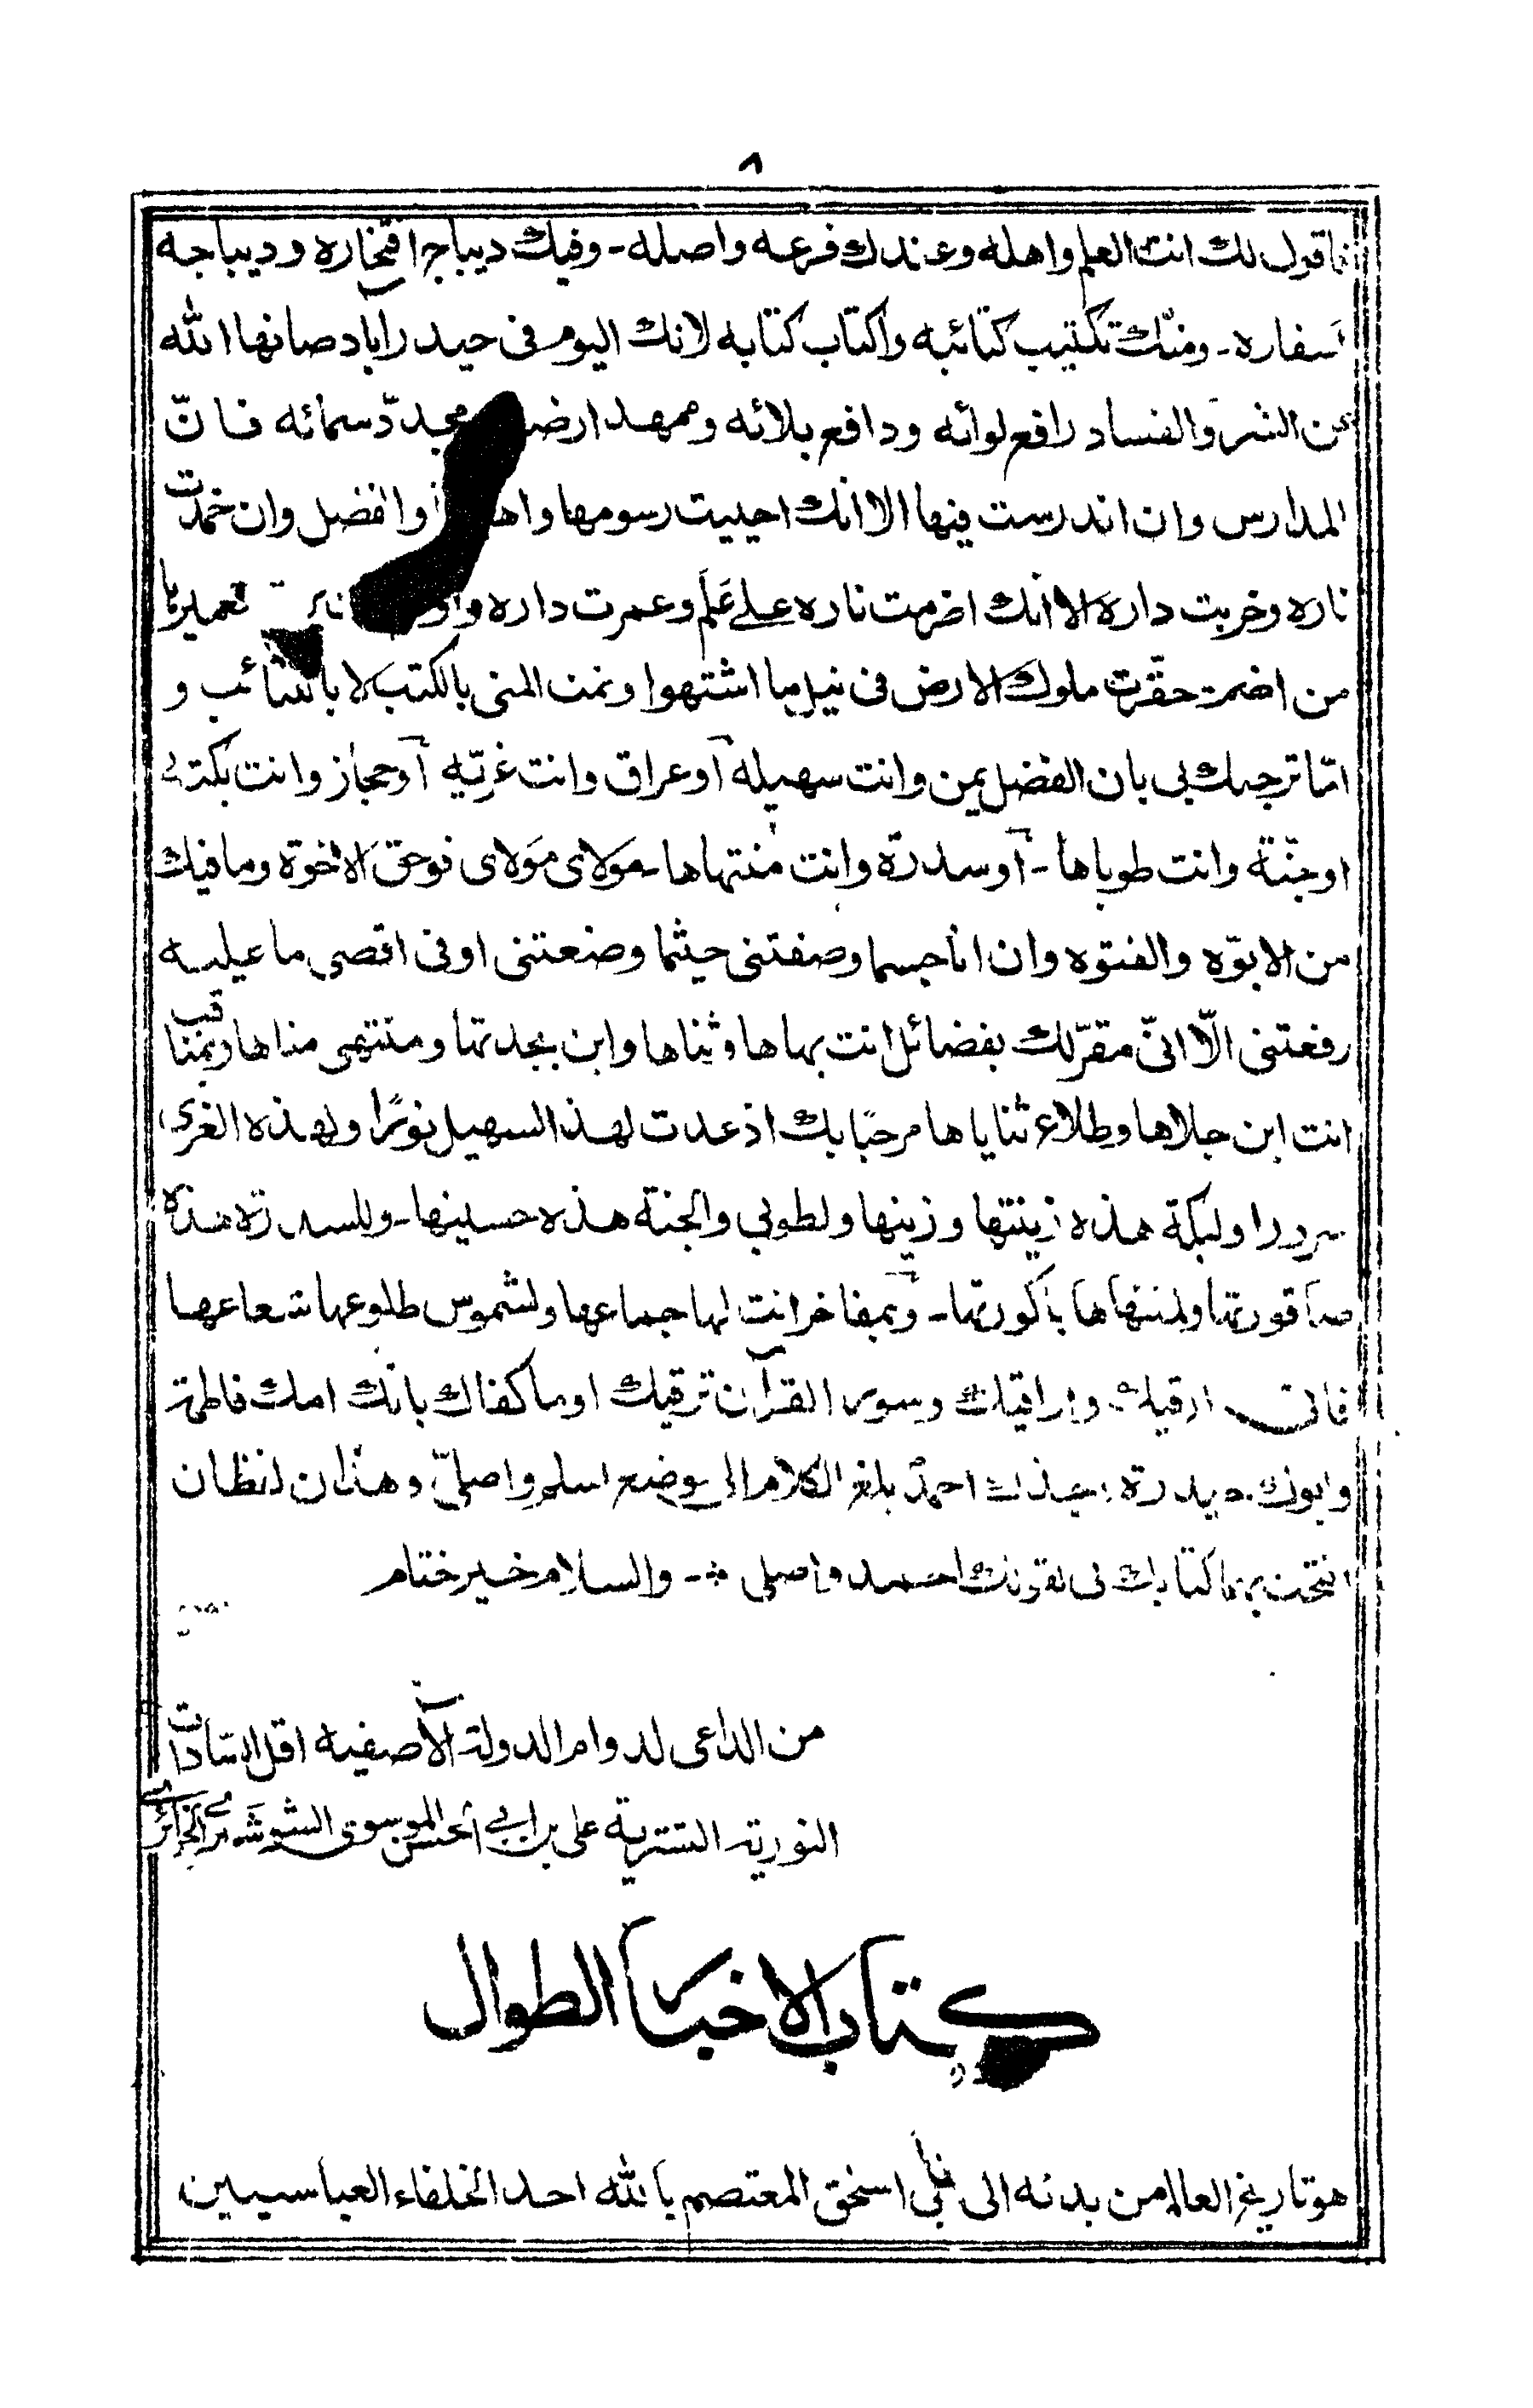 ٨
فاقول لك انت العلم واهله وعندك فرعه واصله - وفيك ديباج افتخاره وديباجه
أسفاره - ومنك تكتيب كتائبه واكتاب كتابه لانك اليوم فى حيدراباد صانها الله
عن الشر والفساد رافع لوائه ودافع بلائه وممهد ارضه مجدّد سمائه فانّ
المدارس وان اندرست فيها الا انك احييت رسومها والفضل وان خمدت
ناره وخربت داره الا انك اضرمت ناره على عَلَم وعمرت داره تعمير
من حقّرت ملوك الارض فى نيل ما اشتهوا ونمت المنى بالكتب لا و
امّا ترجيك بى بان الفضل يمن وانت سهيله أو عراق وانت غريّه أو حجاز وانت بكته
او جنّة وانت طوباها - أو سدرة وانت منتهاها - مولاى مولاى فوحق الاخوة وما فيك
من الابوّه والفتوّه وان انا حيثما وصفتنى حيثما وضعتنى اوفى اقصى ما عليه
رفعتنى الّا انىّ مقرّ لك بفضائل انت بهاها وثناها وابن بجدتها ومنتهى مناها وبمناقب
انت ابن جلاها وطلاع ثناياها مرحبًا بك اذ عدت لهذا السهيل نورًا ولهذه الغرى
سرورا ولبكة هذه زينتها وزينها ولطوبى والجنة هذه حسينها - وللسدرة هذه
صاقورتها ولمنتهاها باكورتها - وبمفاخر انت لها جماعها ولشموس طلوعها شعاعها
فانى ارقيك وسور القرآن ترقيك اوما كفاك بانك امك فاطمة
وابوك حيدرة احمدٌ بلغ الكلام الى موضع اسلم واصلىّ وهذان لفظان
افتتحت بهما كتابك لى بقولك احمد واصلى - والسلام خير ختام
من الداعى لدوام الدولة الآصفيه اقل السّادات
النورية التسترية على بن ابى الحسن الموسوى الشوشترى الجزائرى
كتاب الاخبار الطوال
هو تاريخ العالم من بدئه الى ابى اسحق المعتصم بالله احد الخلفاء العباسيين